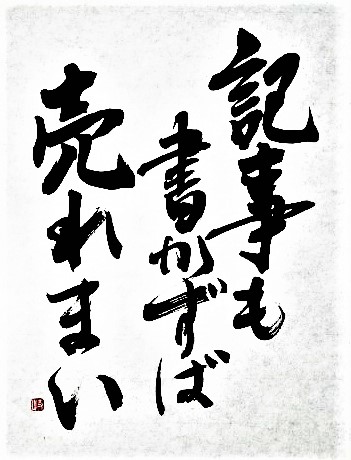 記事も
書かずば
売れまい